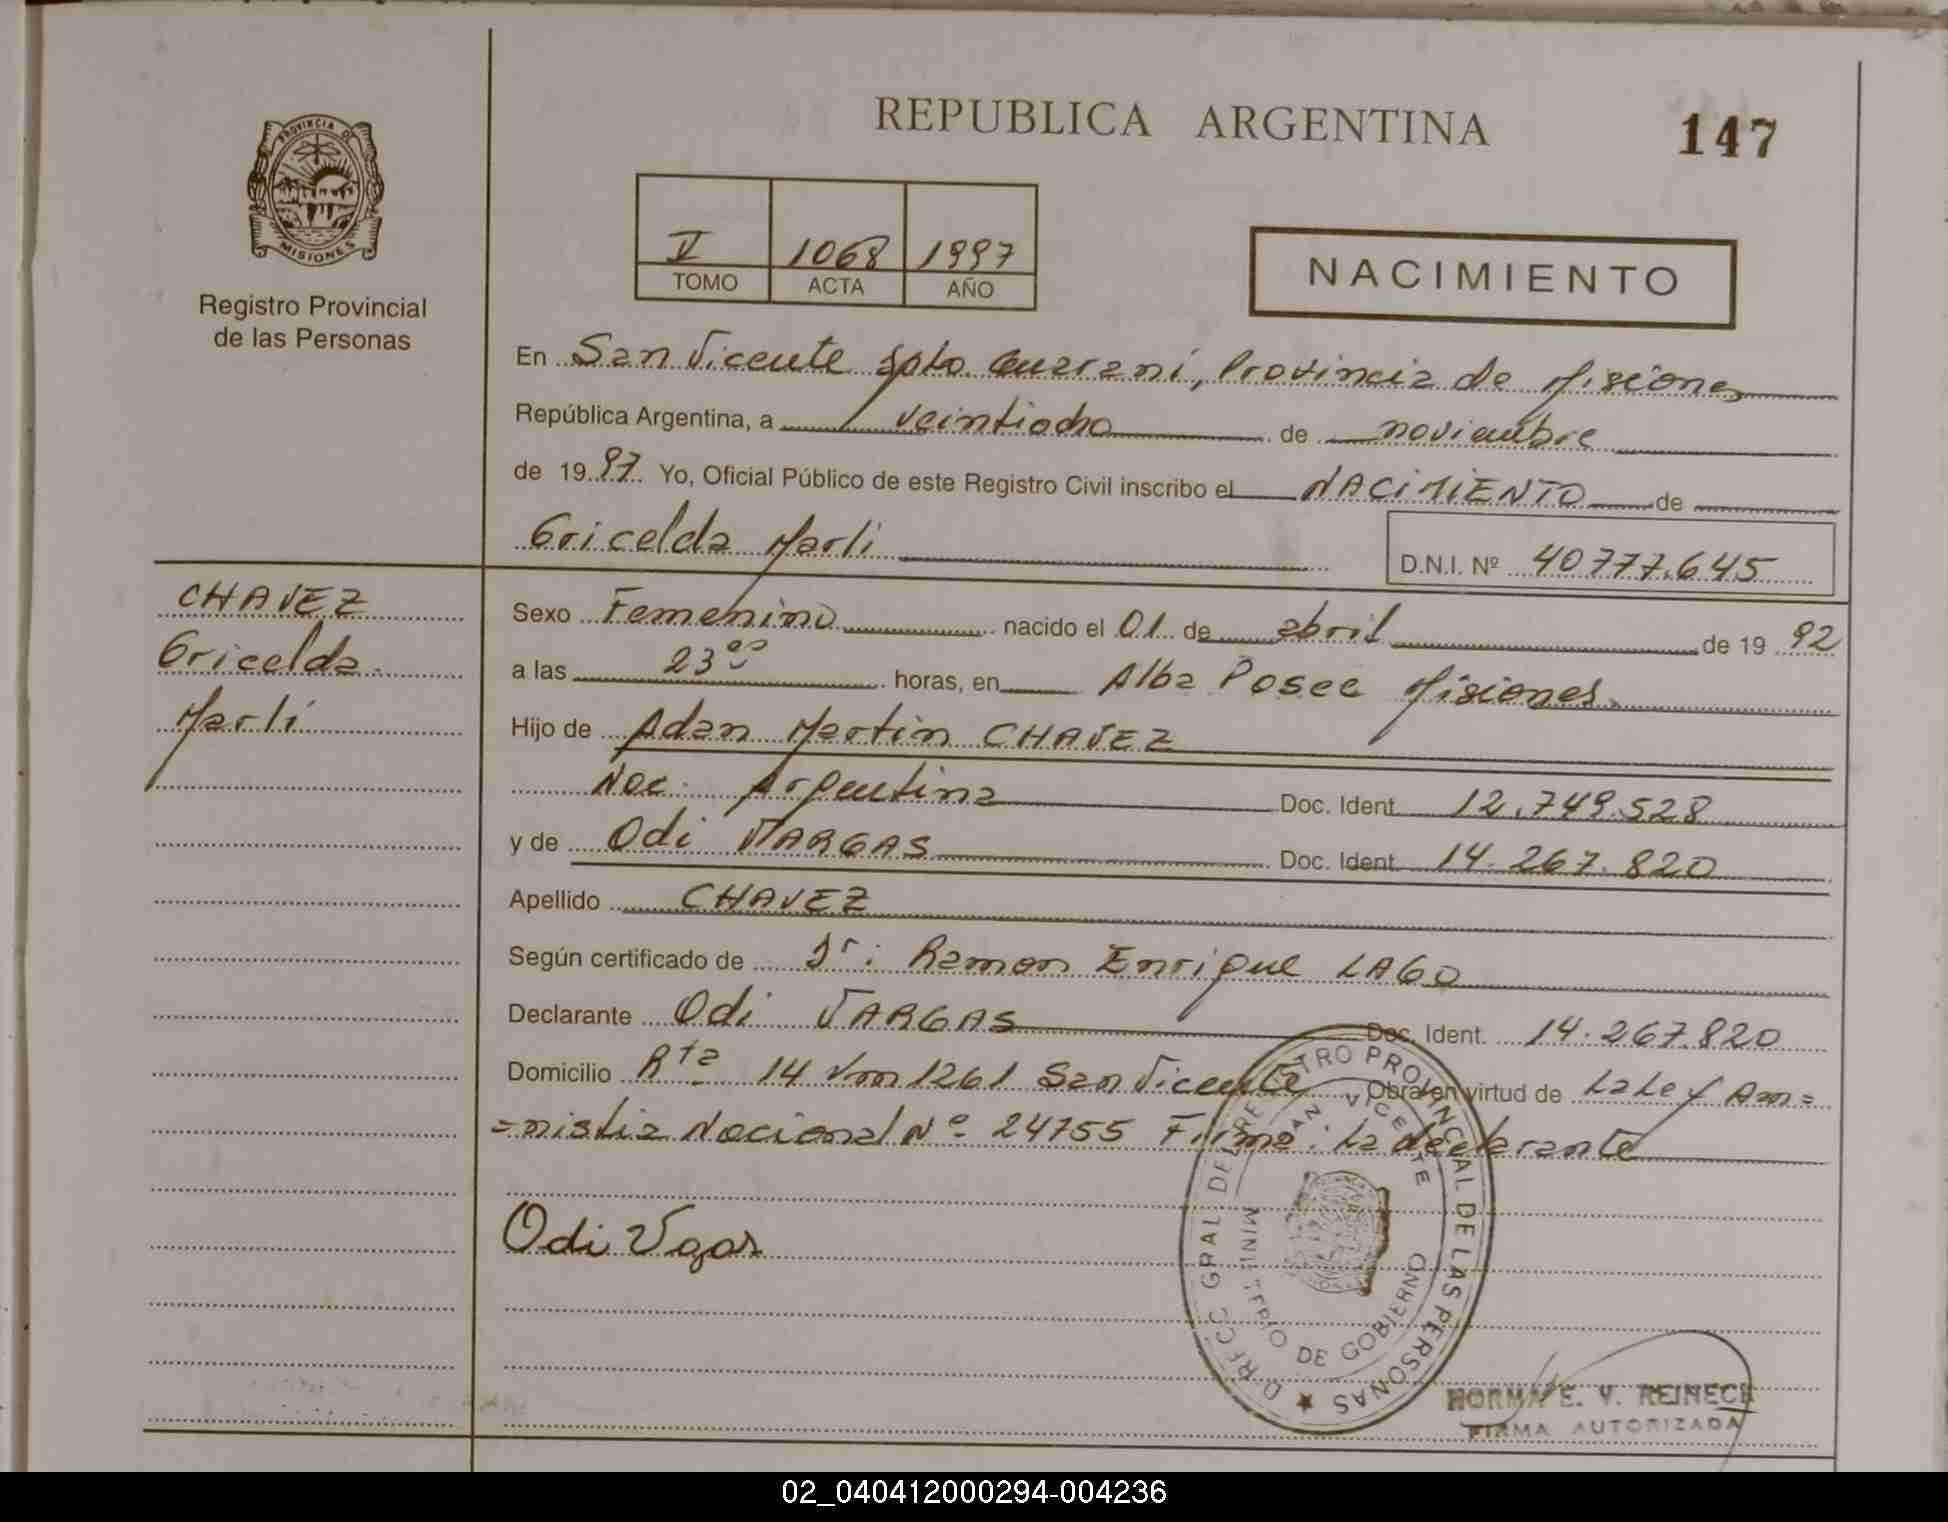 REPUBLICA ARGENTINA
147
PROVINCIA D
MISIONES
Registro Provincial
de las Personas
V 1068 1997
TOMO ACTA AÑO
NACIMIENTO
En San Vicente Dpto. Guarani, Provincia de Misiones
República Argentina, a veintiocho de noviembre
de 1997 Yo, Oficial Público de este Registro Civil inscribo el NACIMIENTO de
Gricelda Marli
D.N.I. Nº 40777.645
CHAVEZ
Gricelda
Marli
Sexo Femenino nacido el 01 de abril de 1992
a las 23 horas, en Alba Posee Misiones
Hijo de Adan Martin CHAVEZ
Nac. Argentina Doc. Ident. 12.749.528
y de Odi VARGAS Doc. Ident. 14.267.820
Apellido CHAVEZ
Según certificado de Dr: Ramon Enrique LAGO
Declarante Odi VARGAS Doc. Ident. 14.267.820
Domicilio Rta 14 Km 1261 San Vicente Obra en virtud de La Ley Am=
=nistia Nacional Nº 24755 Firma: La declarante
Odi Vgas
DIRECC. GRAL DEL REGISTRO PROVINCIAL DE LAS PERSONAS
SAN VICENTE
MINISTERIO DE GOBIERNO
NORMA E. V. REINECK
FIRMA AUTORIZADA
02_040412000294-004236